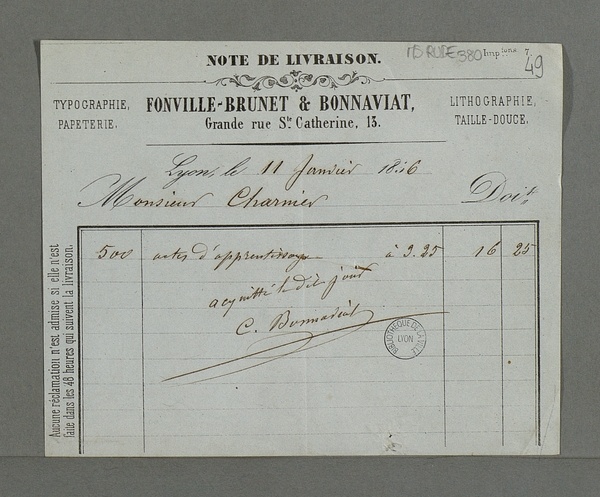 NOTE DE LIVRAISON.
MS RUDE 380
Impions. 7.
49
TYPOGRAPHIE,
PAPETERIE.
FONVILLE-BRUNET & BONNAVIAT,
Grande rue Ste Catherine, 13.
LITHOGRAPHIE,
TAILLE-DOUCE.
Lyon, le 11 Janvier 1856
Monsieur Charnier Doit,
500 actes d'apprentissage à 3.25 16 25
acquitté le dit jour
C. Bonnaviat
BIBLIOTHEQUE DE LA VILLE
LYON
Aucune réclamation n'est admise si elle n'est
faite dans les 48 heures qui suivent la livraison.